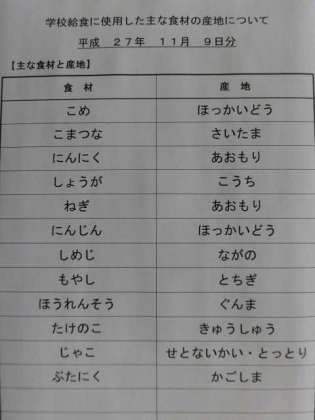 学校給食に使用した主な食材の産地について
平成 27年 11月 9日分
【主な食材と産地】
食 材 産 地
こめ ほっかいどう
こまつな さいたま
にんにく あおもり
しょうが こうち
ねぎ あおもり
にんじん ほっかいどう
しめじ ながの
もやし とちぎ
ほうれんそう ぐんま
たけのこ きゅうしゅう
じゃこ せとないかい・とっとり
ぶたにく かごしま